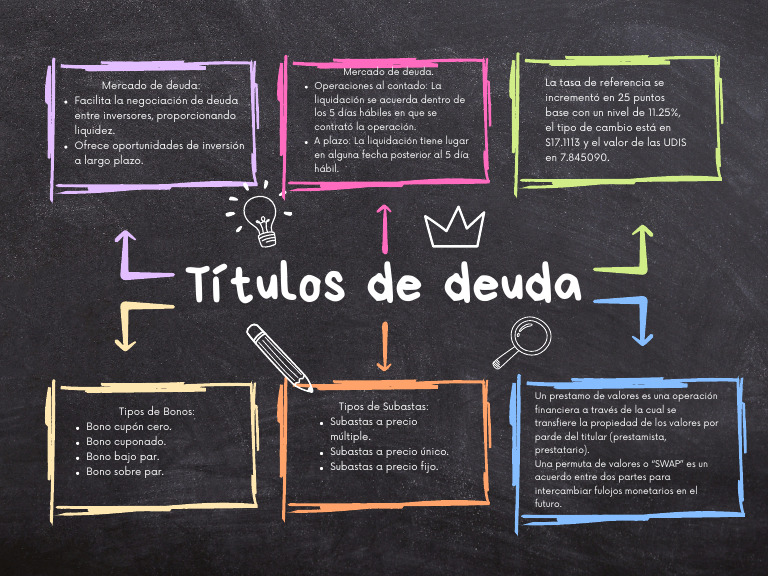 Mercado de deuda:
• Facilita la negociación de deuda
entre inversores, proporcionando
liquidez.
• Ofrece oportunidades de inversión
a largo plazo.
Mercado de deuda.
• Operaciones al contado: La
liquidación se acuerda dentro de
los 5 días hábiles en que se
contrató la operación.
• A plazo: La liquidación tiene lugar
en alguna fecha posterior al 5 día
hábil.
La tasa de referencia se
incrementó en 25 puntos
base con un nivel de 11.25%,
el tipo de cambio está en
$17.1113 y el valor de las UDIS
en 7.845090.
Títulos de deuda
Tipos de Bonos:
• Bono cupón cero.
• Bono cuponado.
• Bono bajo par.
• Bono sobre par.
Tipos de Subastas:
• Subastas a precio
múltiple.
• Subastas a precio único.
• Subastas a precio fijo.
Un prestamo de valores es una operación
financiera a través de la cual se
transfiere la propiedad de los valores por
parde del titular (prestamista,
prestatario).
Una permuta de valores o “SWAP” es un
acuerdo entre dos partes para
intercambiar fulojos monetarios en el
futuro.